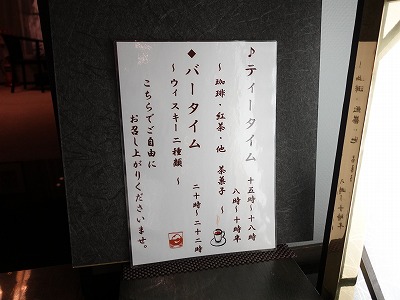 ♪ティータイム 十五時～十八時
八時～十時半
～珈琲・紅茶・他 茶菓子～
◆バータイム 二十時～二十二時
～ウィスキー二種類～
こちらでご自由に
お召し上がりくださいませ。